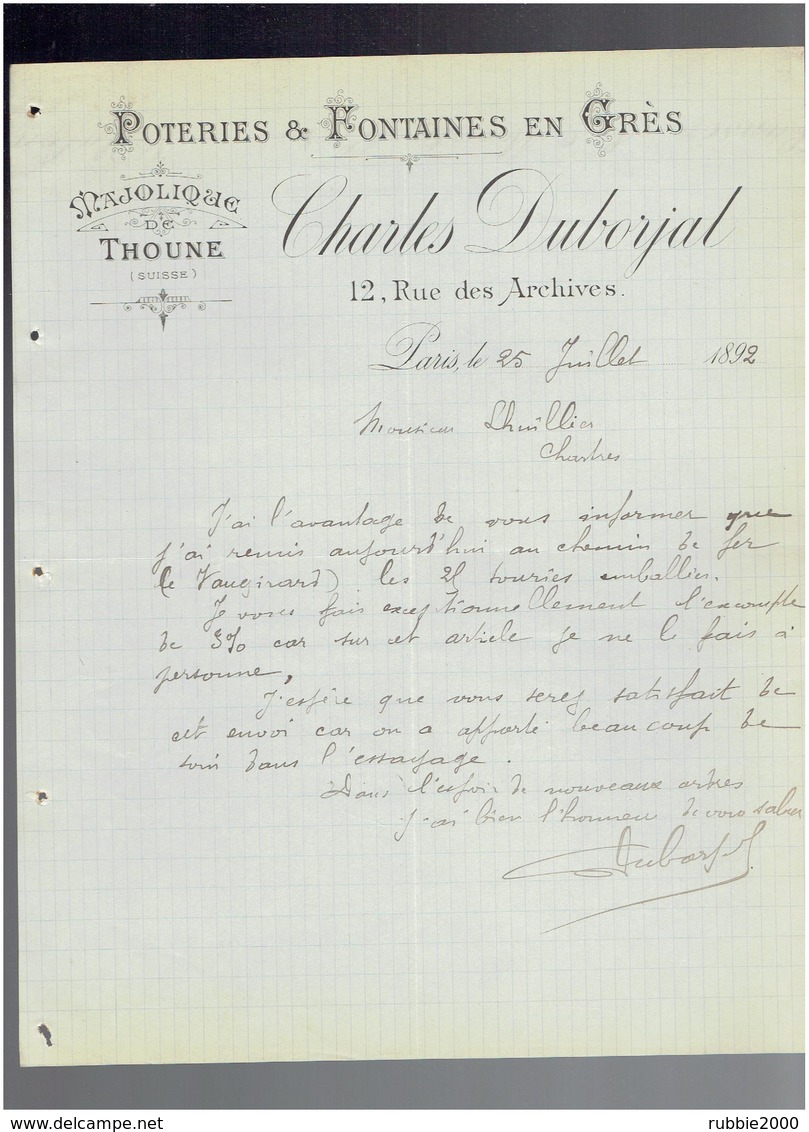 POTERIES & FONTAINES EN GRÈS
MAJOLIQUE
DE
THOUNE
(SUISSE)
Charles Duborjal
12, Rue des Archives.
Paris, le 25 Juillet 1892
Monsieur Lhuillier
Chartres
J'ai l'avantage de vous informer que
j'ai remis aujourd'hui au chemin de fer
(e Vaugirard) les 25 touries emballées.
Je vous fais exceptionnellement l'escompte
de 3% car sur cet article je ne le fais à
personne,
J'espère que vous serez satisfait de
cet envoi car on a apporté beaucoup de
soin dans l'essayage.
Dans l'espoir de nouveaux ordres
J'ai bien l'honneur de vous saluer
Duborjal
delcampe.net
rubbie2000